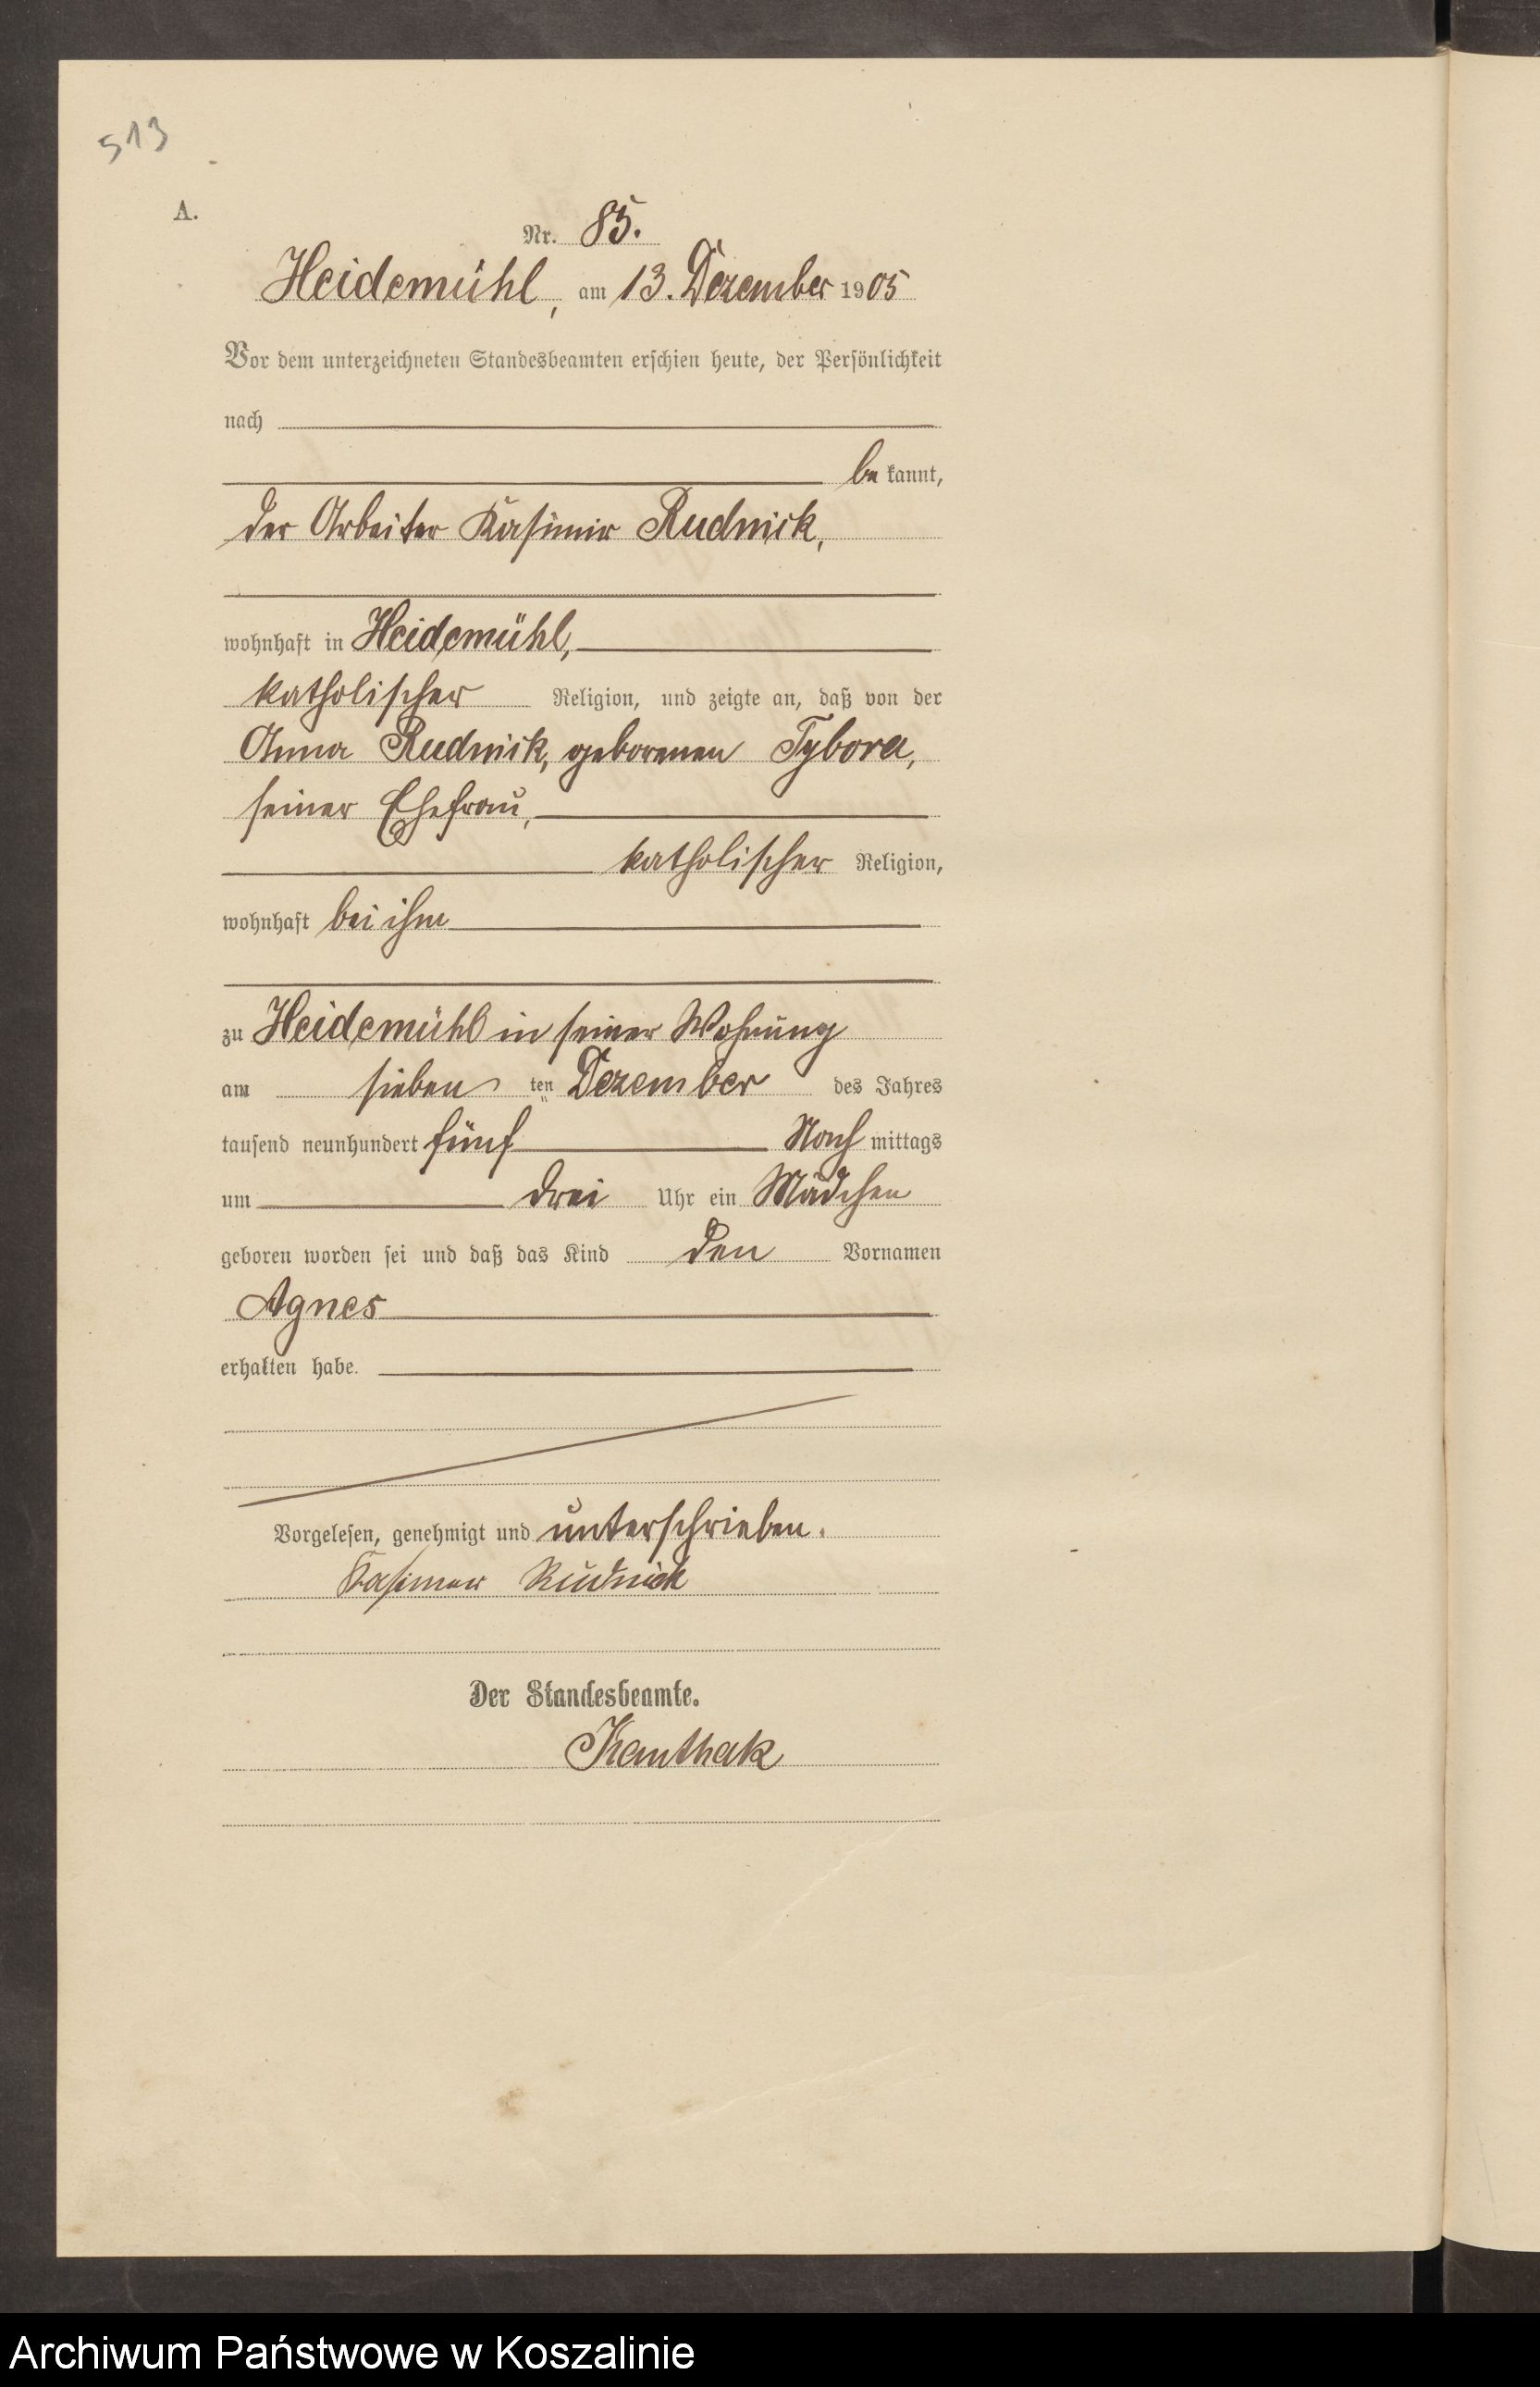 513
A.
Nr. 85.
Heidemühl, am 13. Dezember 1905
Vor dem unterzeichneten Standesbeamten erschien heute, der Persönlichkeit
nach
be kannt,
der Arbeiter Kasimir Rudnick,
wohnhaft in Heidemühl,
katholischer Religion, und zeigte an, daß von der
Anna Rudnick, geborenen Tybora,
seiner Ehefrau,
katholischer Religion,
wohnhaft bei ihm
zu Heidemühl in seiner Wohnung
am sieben ten Dezember des Jahres
tausend neunhundert fünf Nach mittags
um drei Uhr ein Mädchen
geboren worden sei und daß das Kind den Vornamen
Agnes
erhalten habe.
Vorgelesen, genehmigt und unterschrieben.
Kasimer Rudnick
Der Standesbeamte.
Kanthak
Archiwum Państwowe w Koszalinie